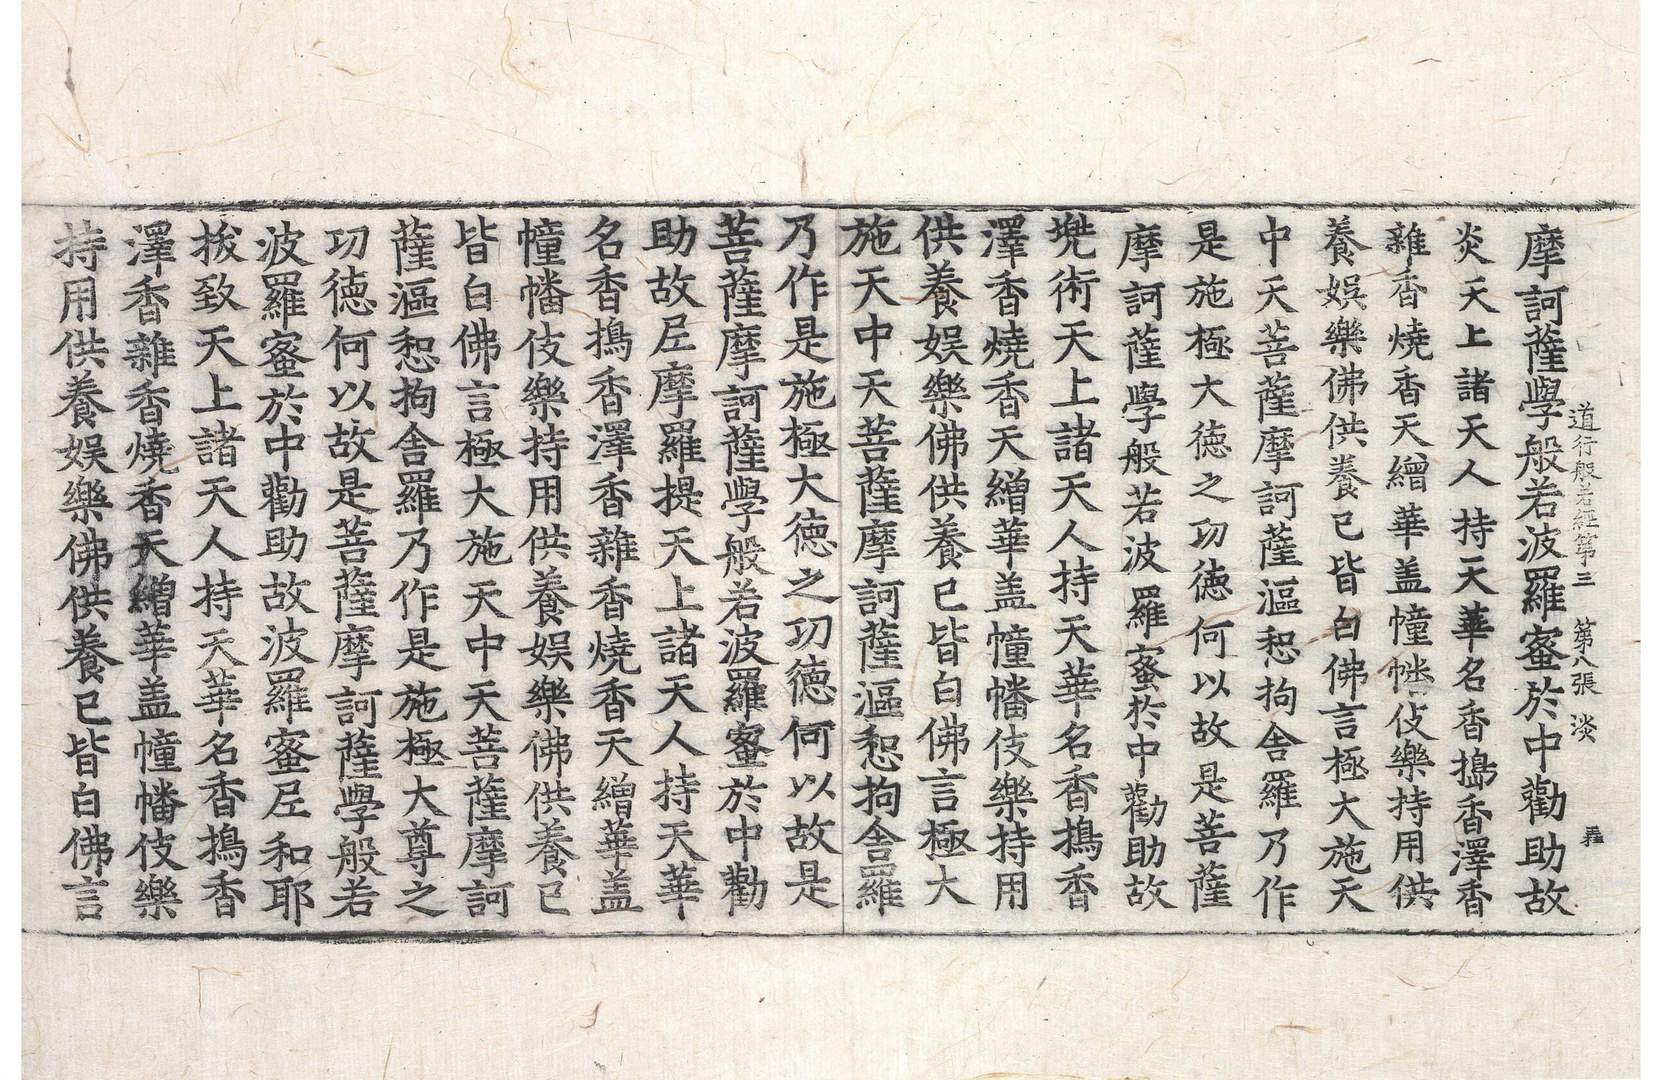 道行般若經第三 第八張 淡
摩訶薩學般若波羅蜜於中勸助故
炎天上諸天人持天華名香擣香澤香
雜香燒香天繒華盖幢幡伎樂持用供
養娛樂佛供養已皆白佛言極大施天
中天菩薩摩訶薩漚惒拘舍羅乃作
是施極大德之功德何以故是菩薩
摩訶薩學般若波羅蜜於中勸助故
兠術天上諸天人持天華名香擣香
澤香燒香天繒華盖幢幡伎樂持用
供養娛樂佛供養已皆白佛言極大
施天中天菩薩摩訶薩漚惒拘舍羅
乃作是施極大德之功德何以故是
菩薩摩訶薩學般若波羅蜜於中勸
助故尼摩羅提天上諸天人持天華
名香擣香澤香雜香燒香天繒華盖
幢幡伎樂持用供養娛樂佛供養已
皆白佛言極大施天中天菩薩摩訶
薩漚惒拘舍羅乃作是施極大尊之
功德何以故是菩薩摩訶薩學般若
波羅蜜於中勸助故波羅蜜尼和耶
拔致天上諸天人持天華名香擣香
澤香雜香燒香天繒華盖幢幡伎樂
持用供養娛樂佛供養已皆白佛言